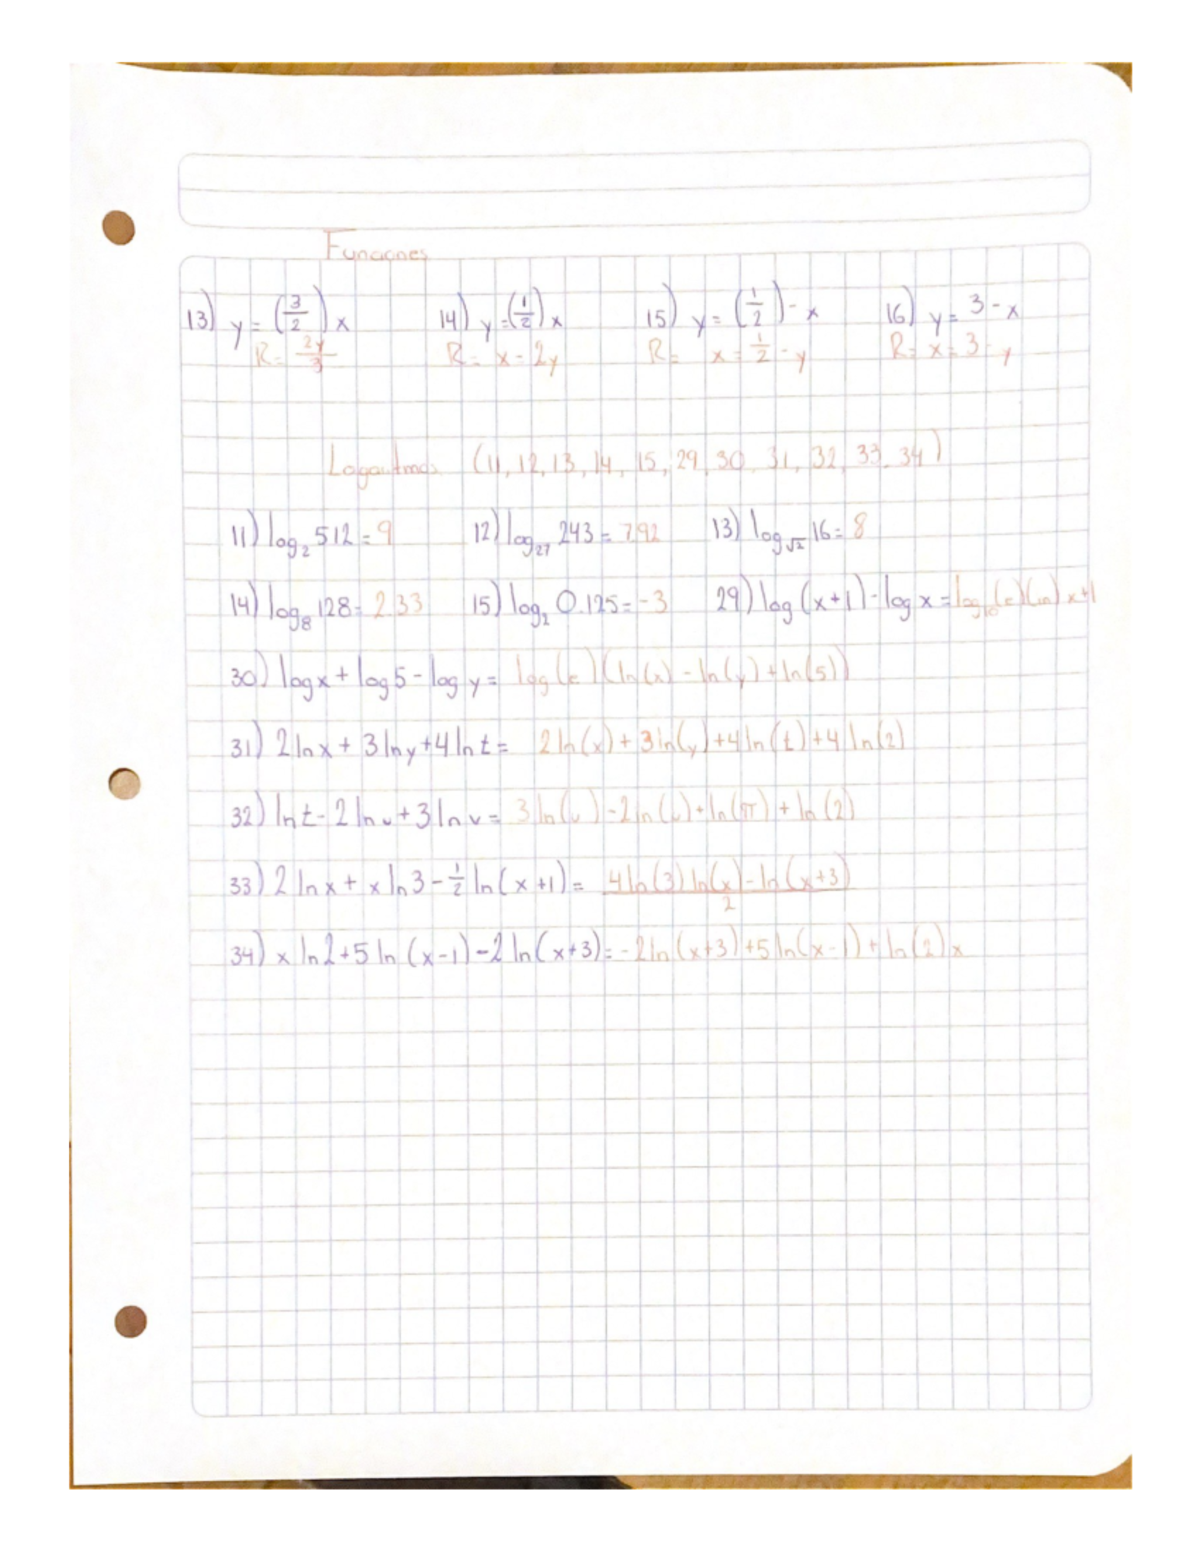 Funciones
13) y = (3/2) x 14) y = (1/2) x 15) y = (1/2) - x 16) y = 3 - x
R = 2y/3 R = x - 2y R = x = 1/2 - y R = x = 3 - y
Logaritmos (11, 12, 13, 14, 15, 29, 30, 31, 32, 33, 34)
11) log₂ 512 = 9 12) log₂₇ 243 = 7.92 13) log√2 16 = 8
14) log₈ 128 = 2.33 15) log₂ 0.125 = -3 29) log (x+1) - log x = log₁₀(e)(ln) x+1
30) log x + log 5 - log y = log (e) (ln(x) - ln(y) + ln(5))
31) 2 ln x + 3 ln y + 4 ln t = 2 ln(x) + 3 ln(y) + 4 ln(t) + 4 ln(2)
32) ln t - 2 ln u + 3 ln v = 3 ln(v) - 2 ln(u) + ln(π) + ln(2)
33) 2 ln x + x ln 3 - 1/2 ln (x+1) = 4 ln(3) ln(x) - ln(x+3) / 2
34) x ln 2 + 5 ln (x-1) - 2 ln (x+3) = -2 ln (x+3) + 5 ln (x-1) + ln(2) x